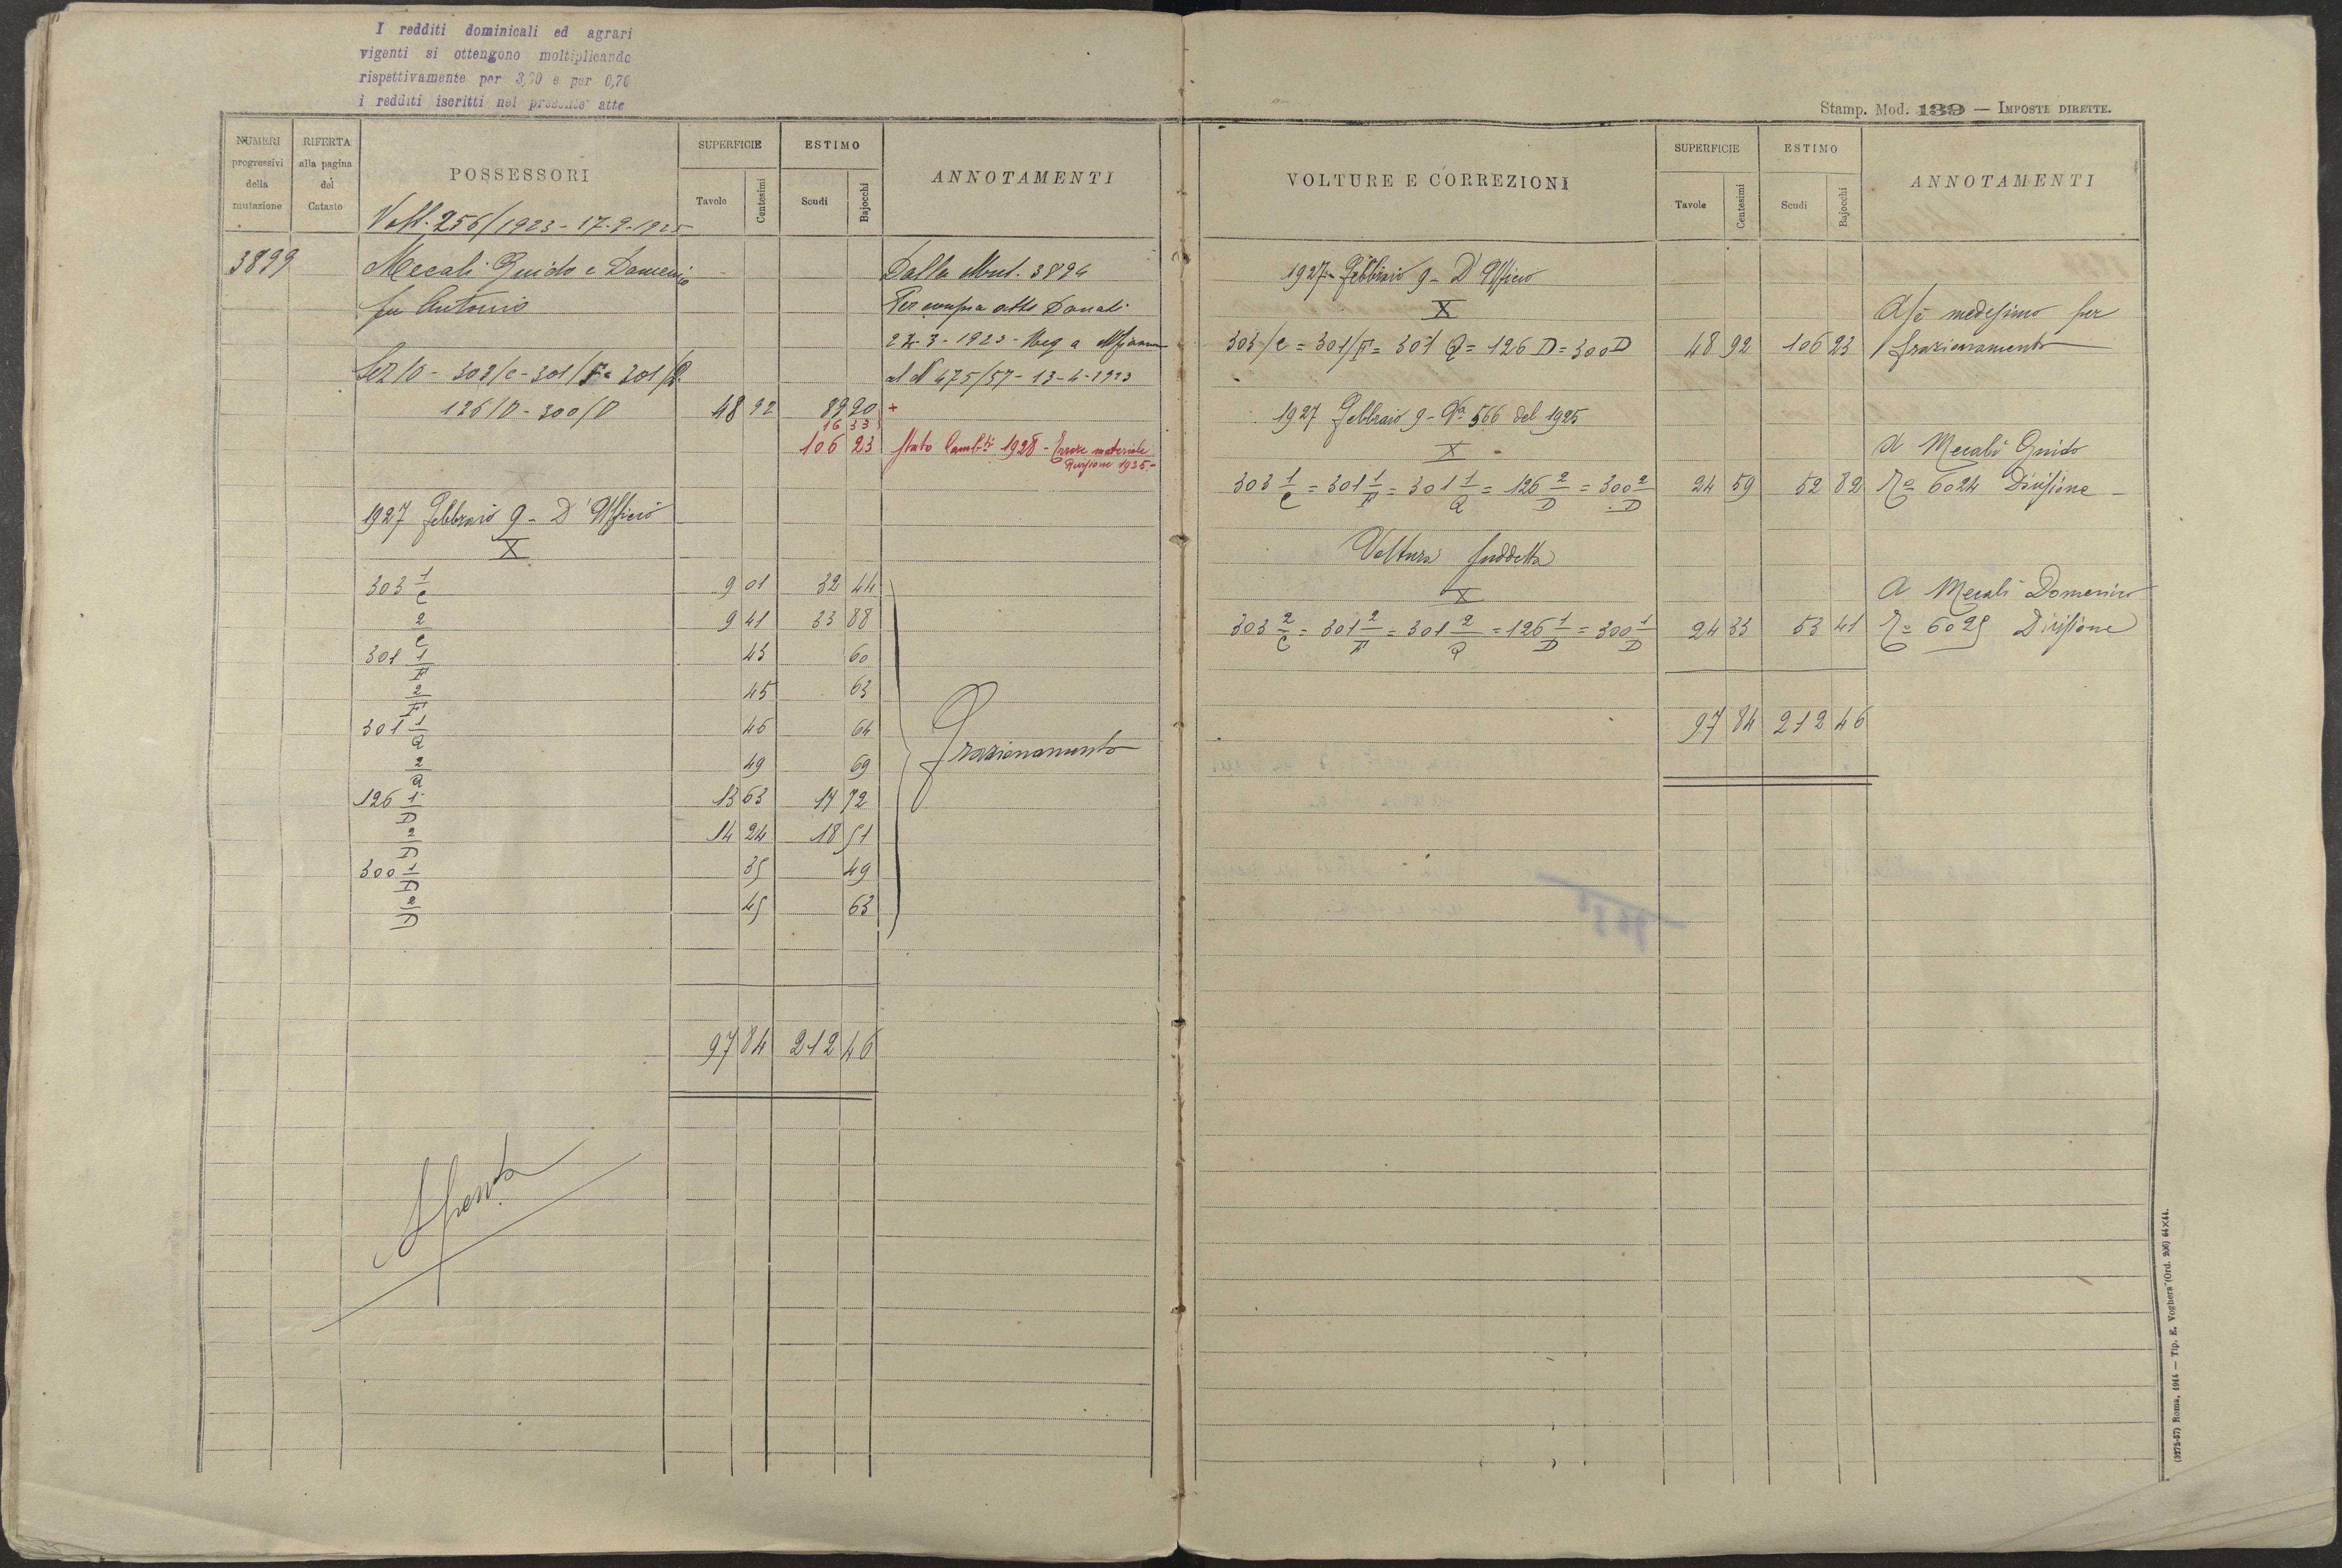 I redditi dominicali ed agrari
vigenti si ottengono moltiplicando
rispettivamente per 3,90 e per 0,70
i redditi iscritti nel presente atto
NUMERI progressivi della mutazione
RIFERTA alla pagina del Catasto
POSSESSORI
SUPERFICIE
Tavole Centesimi
ESTIMO
Scudi Bajocchi
ANNOTAMENTI
Volt. 256/1923 - 17-9-1925
3899 Mecali Guido e Domenico Dalla Mut. 3894
fu Antonio Per compra atto Donati
1923 - Reg a
Sez/O - 303/C - 301/F - 301/Q al N 475/57 - 13-4-1923
126/D - 300/D 48 92 89 90 +
16 33
106 23 Stato Camb.ti 1928 - Errore materiale
Divisione 1925 -
1927 Febbraio 9 - D'Ufficio
X
303 1/C 9 01 32 44
2/C 9 41 33 88
301 1/F 43 60
2/F 45 63
301 1/Q 46 64
2/Q 49 69
Frazionamento
126 1/D 13 63 17 72
2/D 14 24 18 51
300 1/D 35 49
2/D 45 63
97 84 212 46
Spenta
Stamp. Mod. 139 — IMPOSTE DIRETTE.
VOLTURE E CORREZIONI
SUPERFICIE
Tavole Centesimi
ESTIMO
Scudi Bajocchi
ANNOTAMENTI
1927 Febbraio 9 - D'Ufficio
X A sè medesimo per
303/C = 301/F = 301 Q = 126 D = 300 D 48 92 106 23 frazionamento
1927 Febbraio 9 - Va 566 del 1925
X A Mecali Guido
303 1/C = 301 1/F = 301 1/Q = 126 2/D = 300 2/D 24 59 52 82 6024 Divisione
Voltura suddetta
X A Mecali Domenico
303 2/C = 301 2/F = 301 2/Q = 126 1/D = 300 1/D 24 33 53 41 6025 Divisione
97 84 212 46
(3275-57) Roma, 1914 — Tip. E. Voghera (Ord. 206) 64×44.